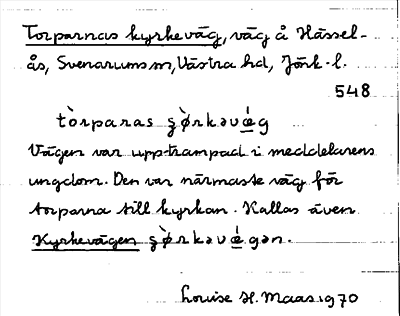 Torparnas kyrkeväg, väg å Hässel-
ås, Svenarums sn, Västra hd, Jönk. l.
548
tò̀rparas ʂò̀rkəvé̱g
Vägen var upptrampad i meddelarens
ungdom. Den var närmaste väg för
torparna till kyrkan. Kallas även
Kyrkevägen ʂò̀rkəvé̱gən.
Louise H. Maas 1970